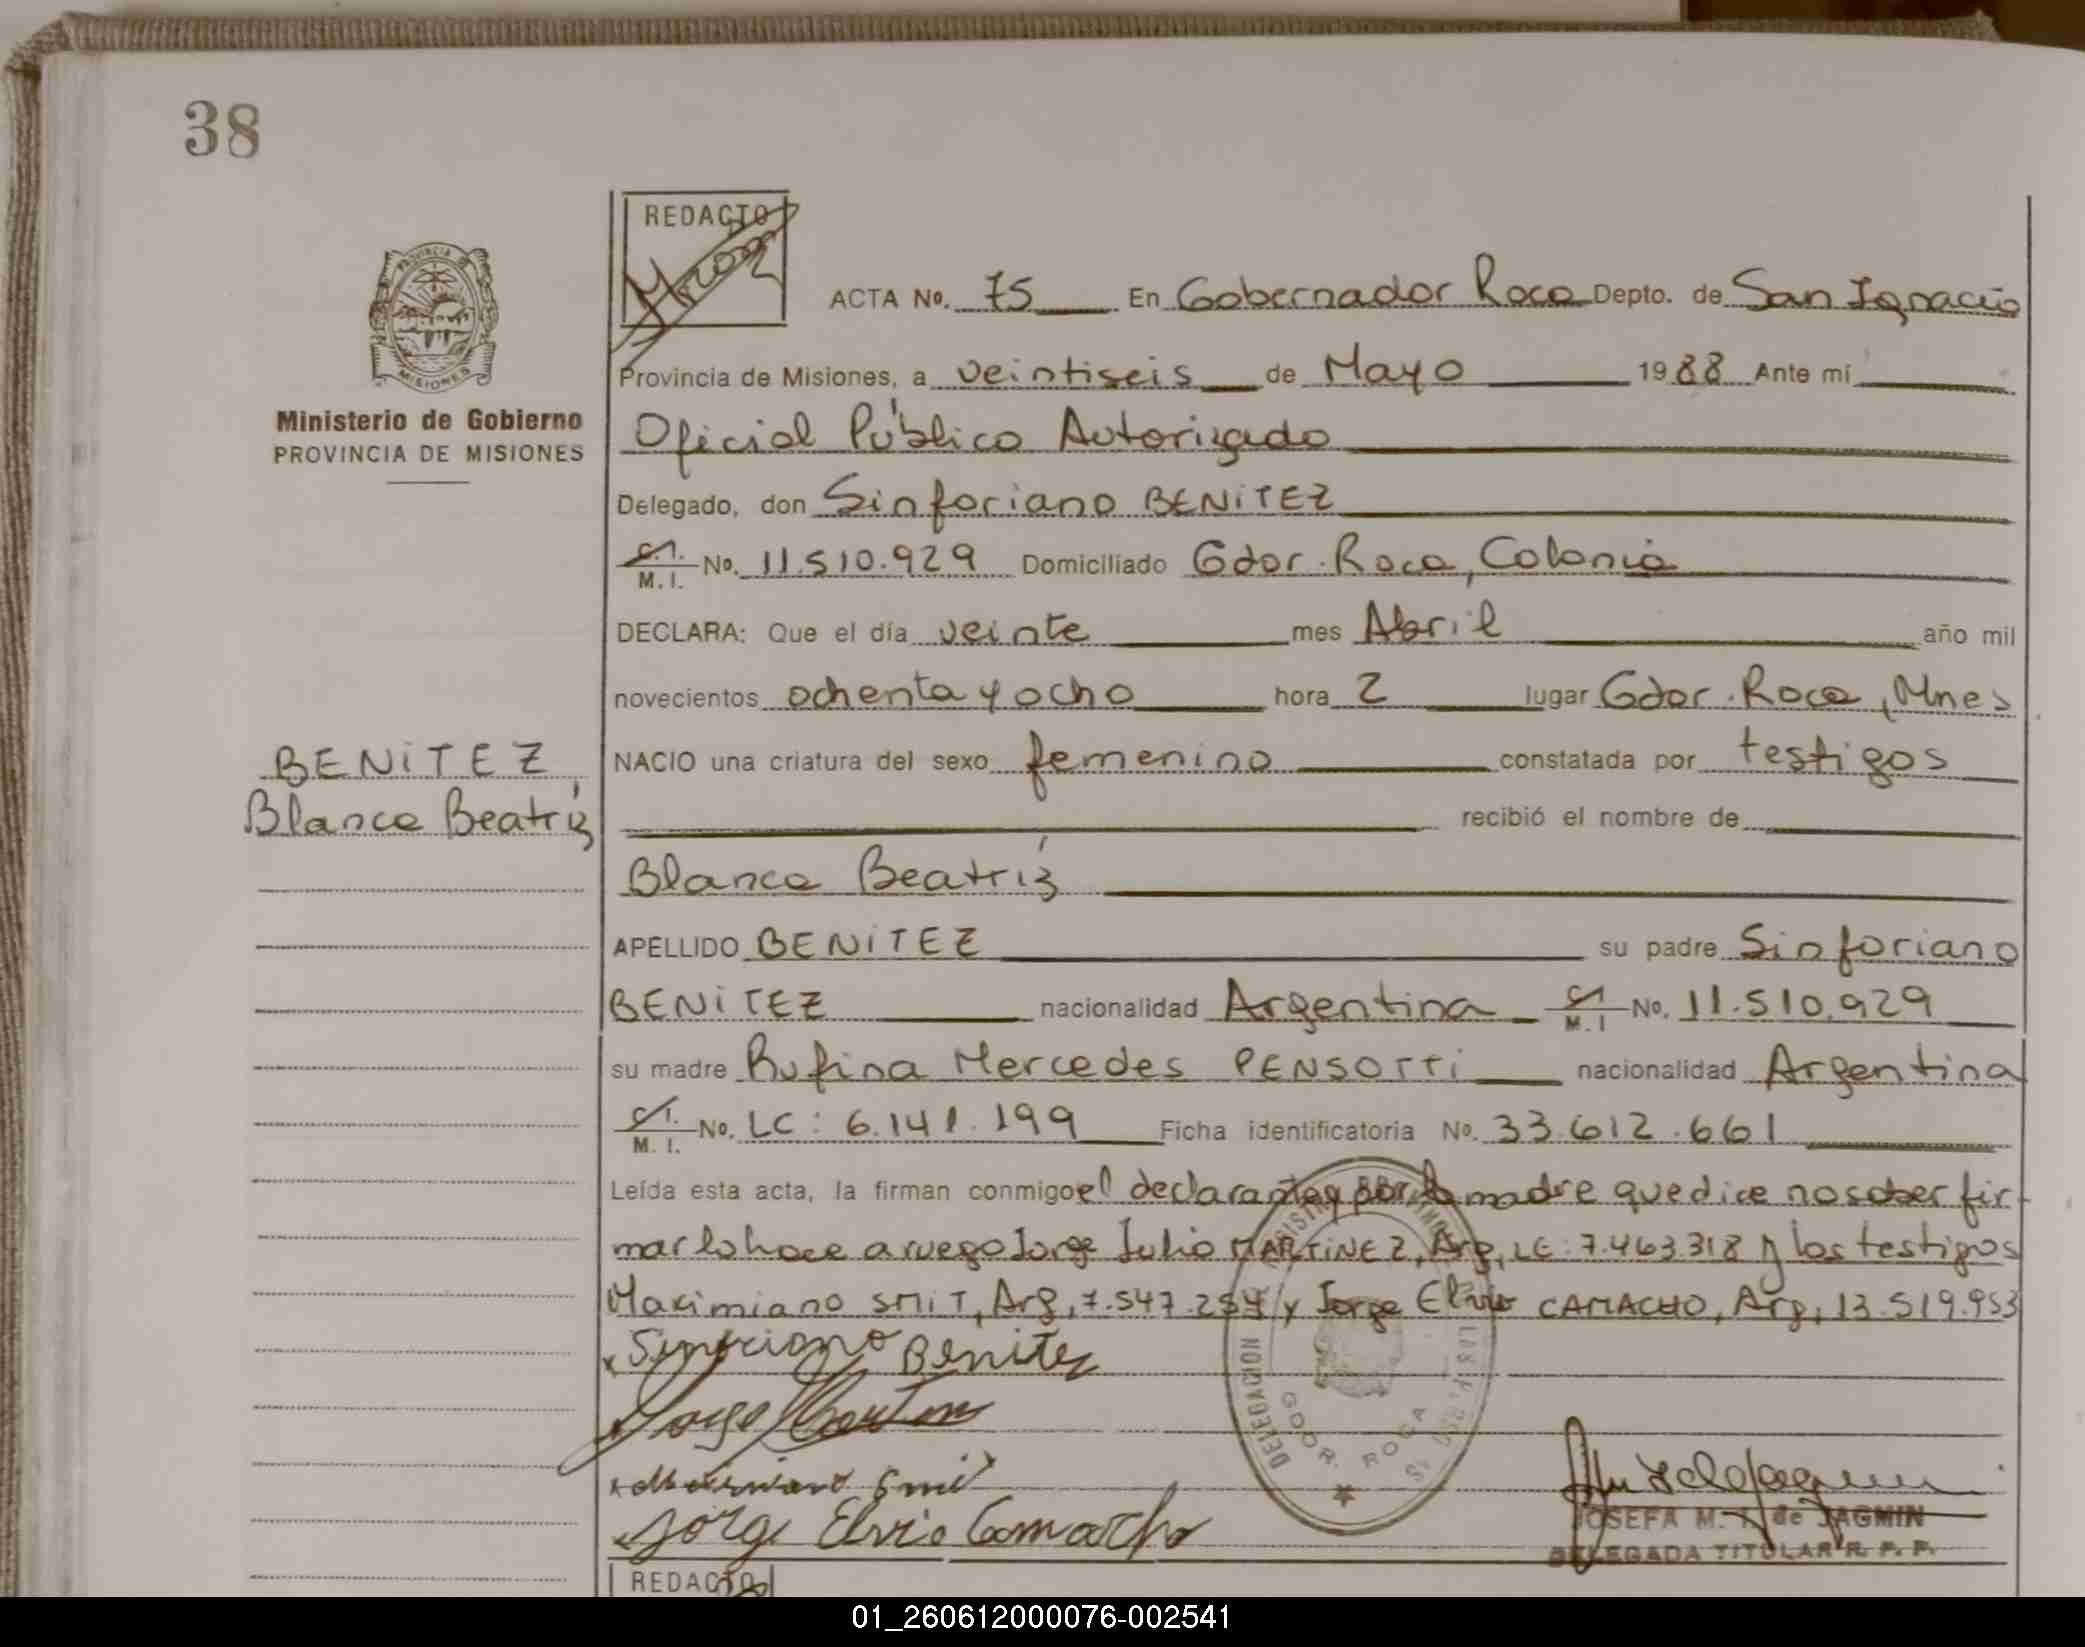 38
REDACTO
PROVINCIA DE
MISIONES
Ministerio de Gobierno
PROVINCIA DE MISIONES
ACTA No. 75 En Gobernador Roca Depto. de San Ignacio
Provincia de Misiones, a veintiseis de Mayo 1988 Ante mí
Oficial Público Autorizado
Delegado, don Sinforiano BENITEZ
C.I. M.I. No. 11.510.929 Domiciliado Gdor. Roca, Colonia
DECLARA: Que el día veinte mes Abril año mil
novecientos ochenta y ocho hora 2 lugar Gdor. Roca, Mnes
BENITEZ,
Blanca Beatriz
NACIO una criatura del sexo femenino constatada por testigos
recibió el nombre de
Blanca Beatríz
APELLIDO BENITEZ su padre Sinforiano
BENITEZ nacionalidad Argentina C.I. M.I No. 11.510.929
su madre Rufina Mercedes PENSOTTI nacionalidad Argentina
C.I. M.I. No. LC: 6.141.199 Ficha identificatoria No. 33.612.661
Leída esta acta, la firman conmigo el declarante y por la madre que dice no saber fir-
mar lo hace a ruego Jorge Julio MARTINEZ, Arg, LE: 7.463.318 y los testigos
Maximiano SMIT, Arg, 7.547.254 y Jorge Elvio CAMACHO, Arg, 13.519.953
x Sinforiano Benitez
Jorge
Smit
Jorge Elvio Camacho
DELEGACION REGISTRO DE LAS PERSONAS
GDOR. ROCA
JOSEFA M. T. de JAGMIN
DELEGADA TITULAR R. P. P.
REDACTO
01_260612000076-002541